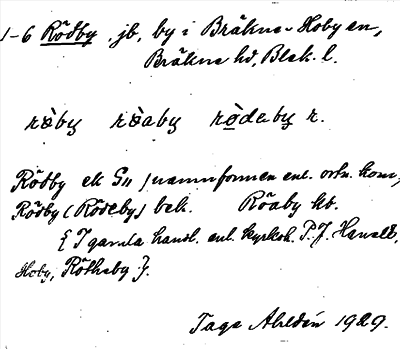 1-6 Rödby, jb, by i Bräkne-Hoby sn,
Bräkne hd, Blek. l.
röby röaby rödeby r.
Rödby ek G11 namnformen enl. ortn. kom,
Rödby (Rödeby) bek. Röaby kb.
{ I gamla handl. enl. kyrkoh. P. J.
Hoby, Rötheby }.
Tage Ahldén 1929.